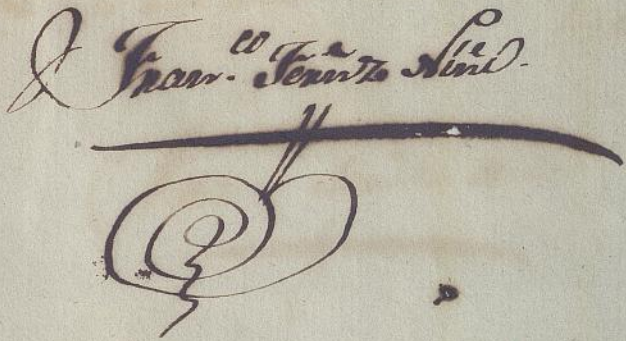 Fran.co Fernz Niño.